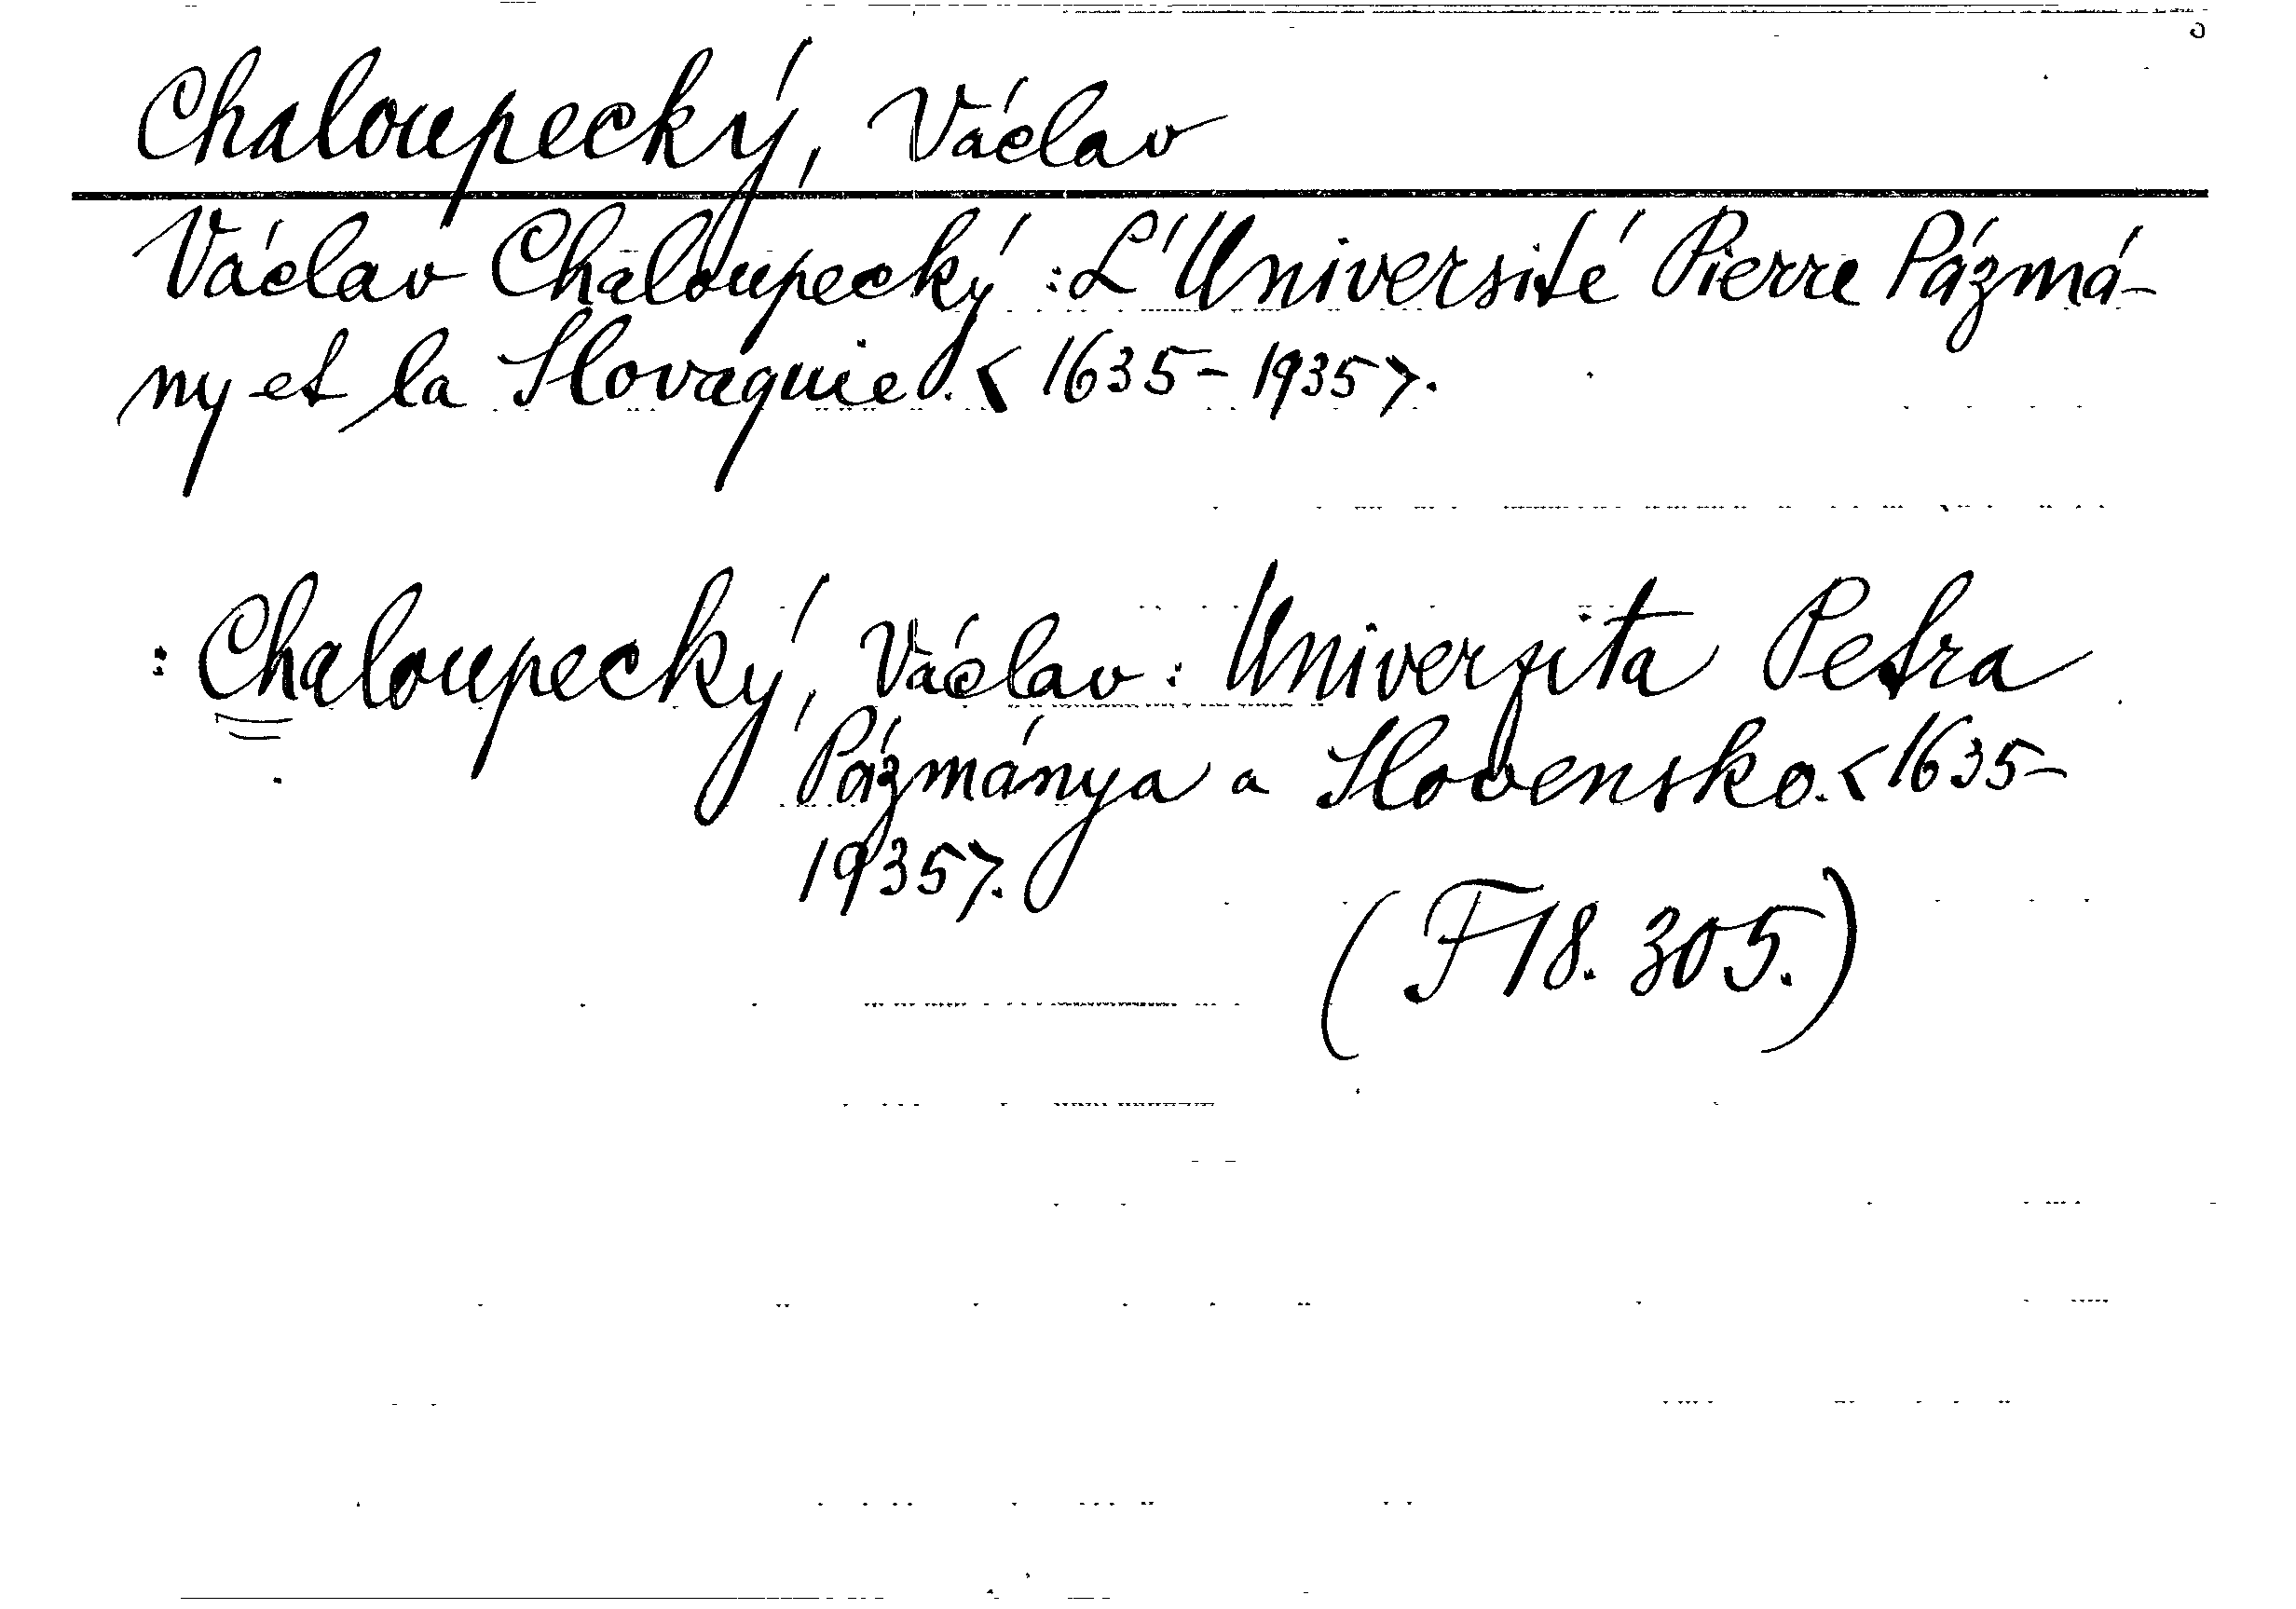 Chaloupecký, Václav
Václav Chaloupecký: L'Université Pierre Pázmá-
ny et la Slovaquie. < 1635-1935>.
: Chaloupecký, Václav: Univerzita Petra
Pázmánya a Slovensko. < 1635-
1935>.
(F 18. 305.)